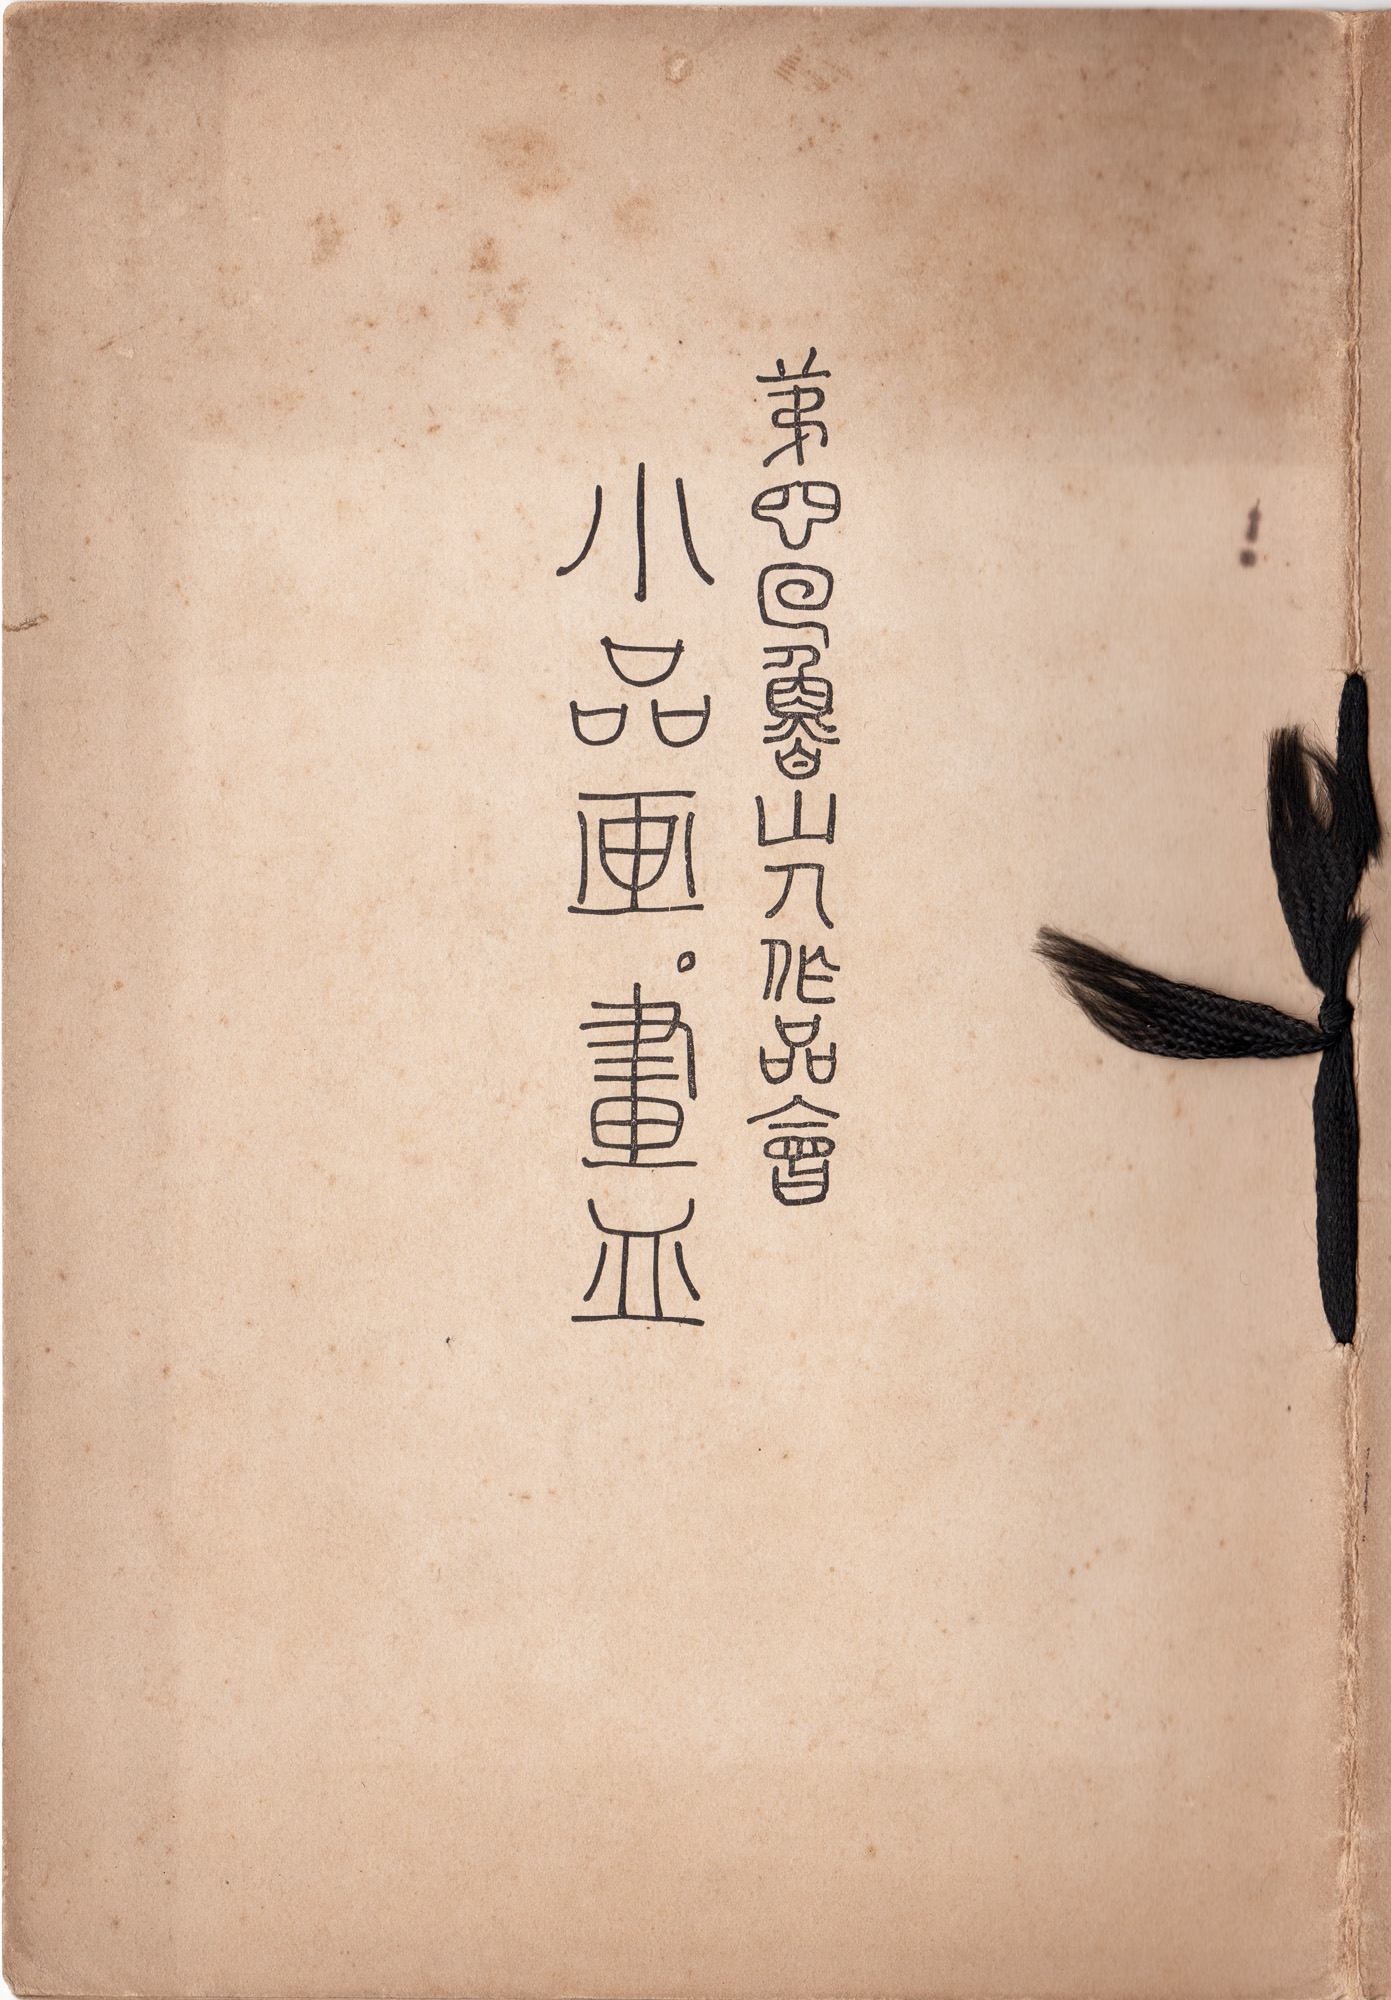 第四回魯山人作品會
小品画。畫並